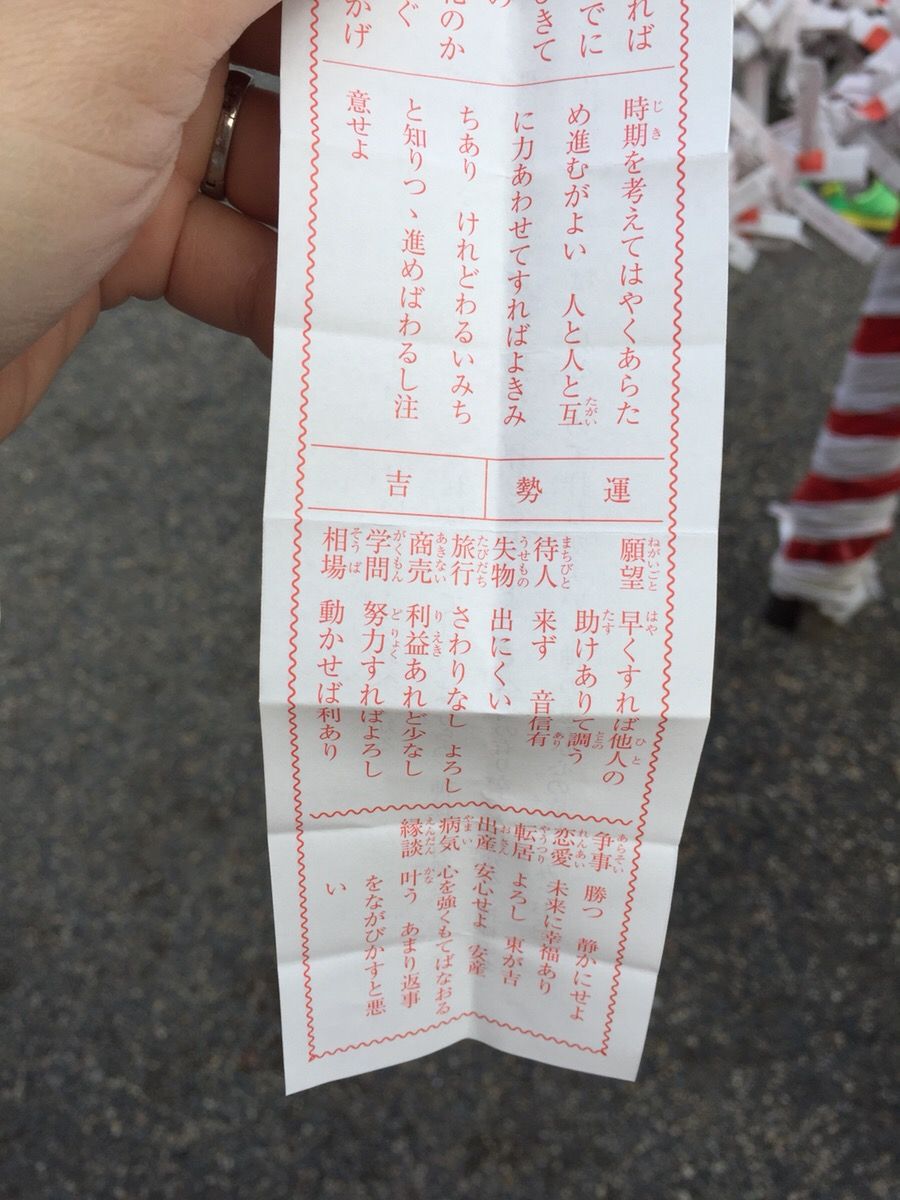 れば
でに
しきて
の
のか
ぐ
かげ
時期を考えてはやくあらた
め進むがよい　人と人と互
に力あわせてすればよきみ
ちあり　けれどわるいみち
と知りつゝ進めばわるし注
意せよ
運勢　吉
願望　早くすれば他人の
助けありて調う
待人　来ず　音信有
失物　出にくい
旅行　さわりなし　よろし
商売　利益あれど少なし
学問　努力すればよろし
相場　動かせば利あり
争事　勝つ　静かにせよ
恋愛　未来に幸福あり
転居　よろし　東が吉
出産　安心せよ　安産
病気　心を強くもてばなおる
縁談　叶う　あまり返事
をながびかすと悪
い